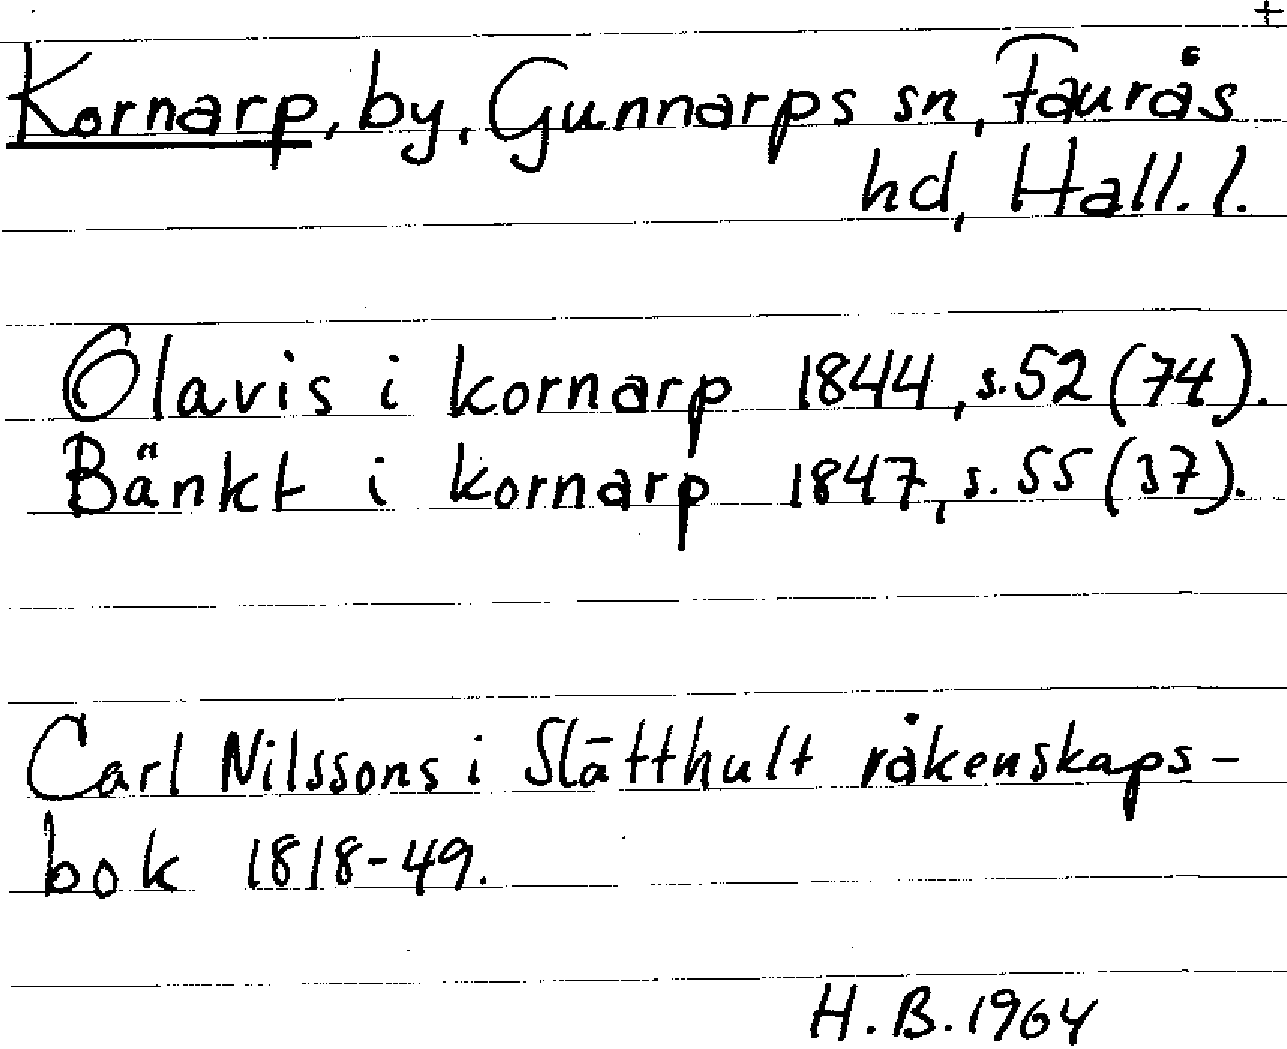 +
Kornarp, by, Gunnarps sn, Faurås
hd, Hall. l.
Olavis i kornarp 1844, s. 52 (74).
Bänkt i kornarp 1847, s. 55 (37).
Carl Nilssons i Slätthult räkenskaps-
bok 1818-49.
H. B. 1964